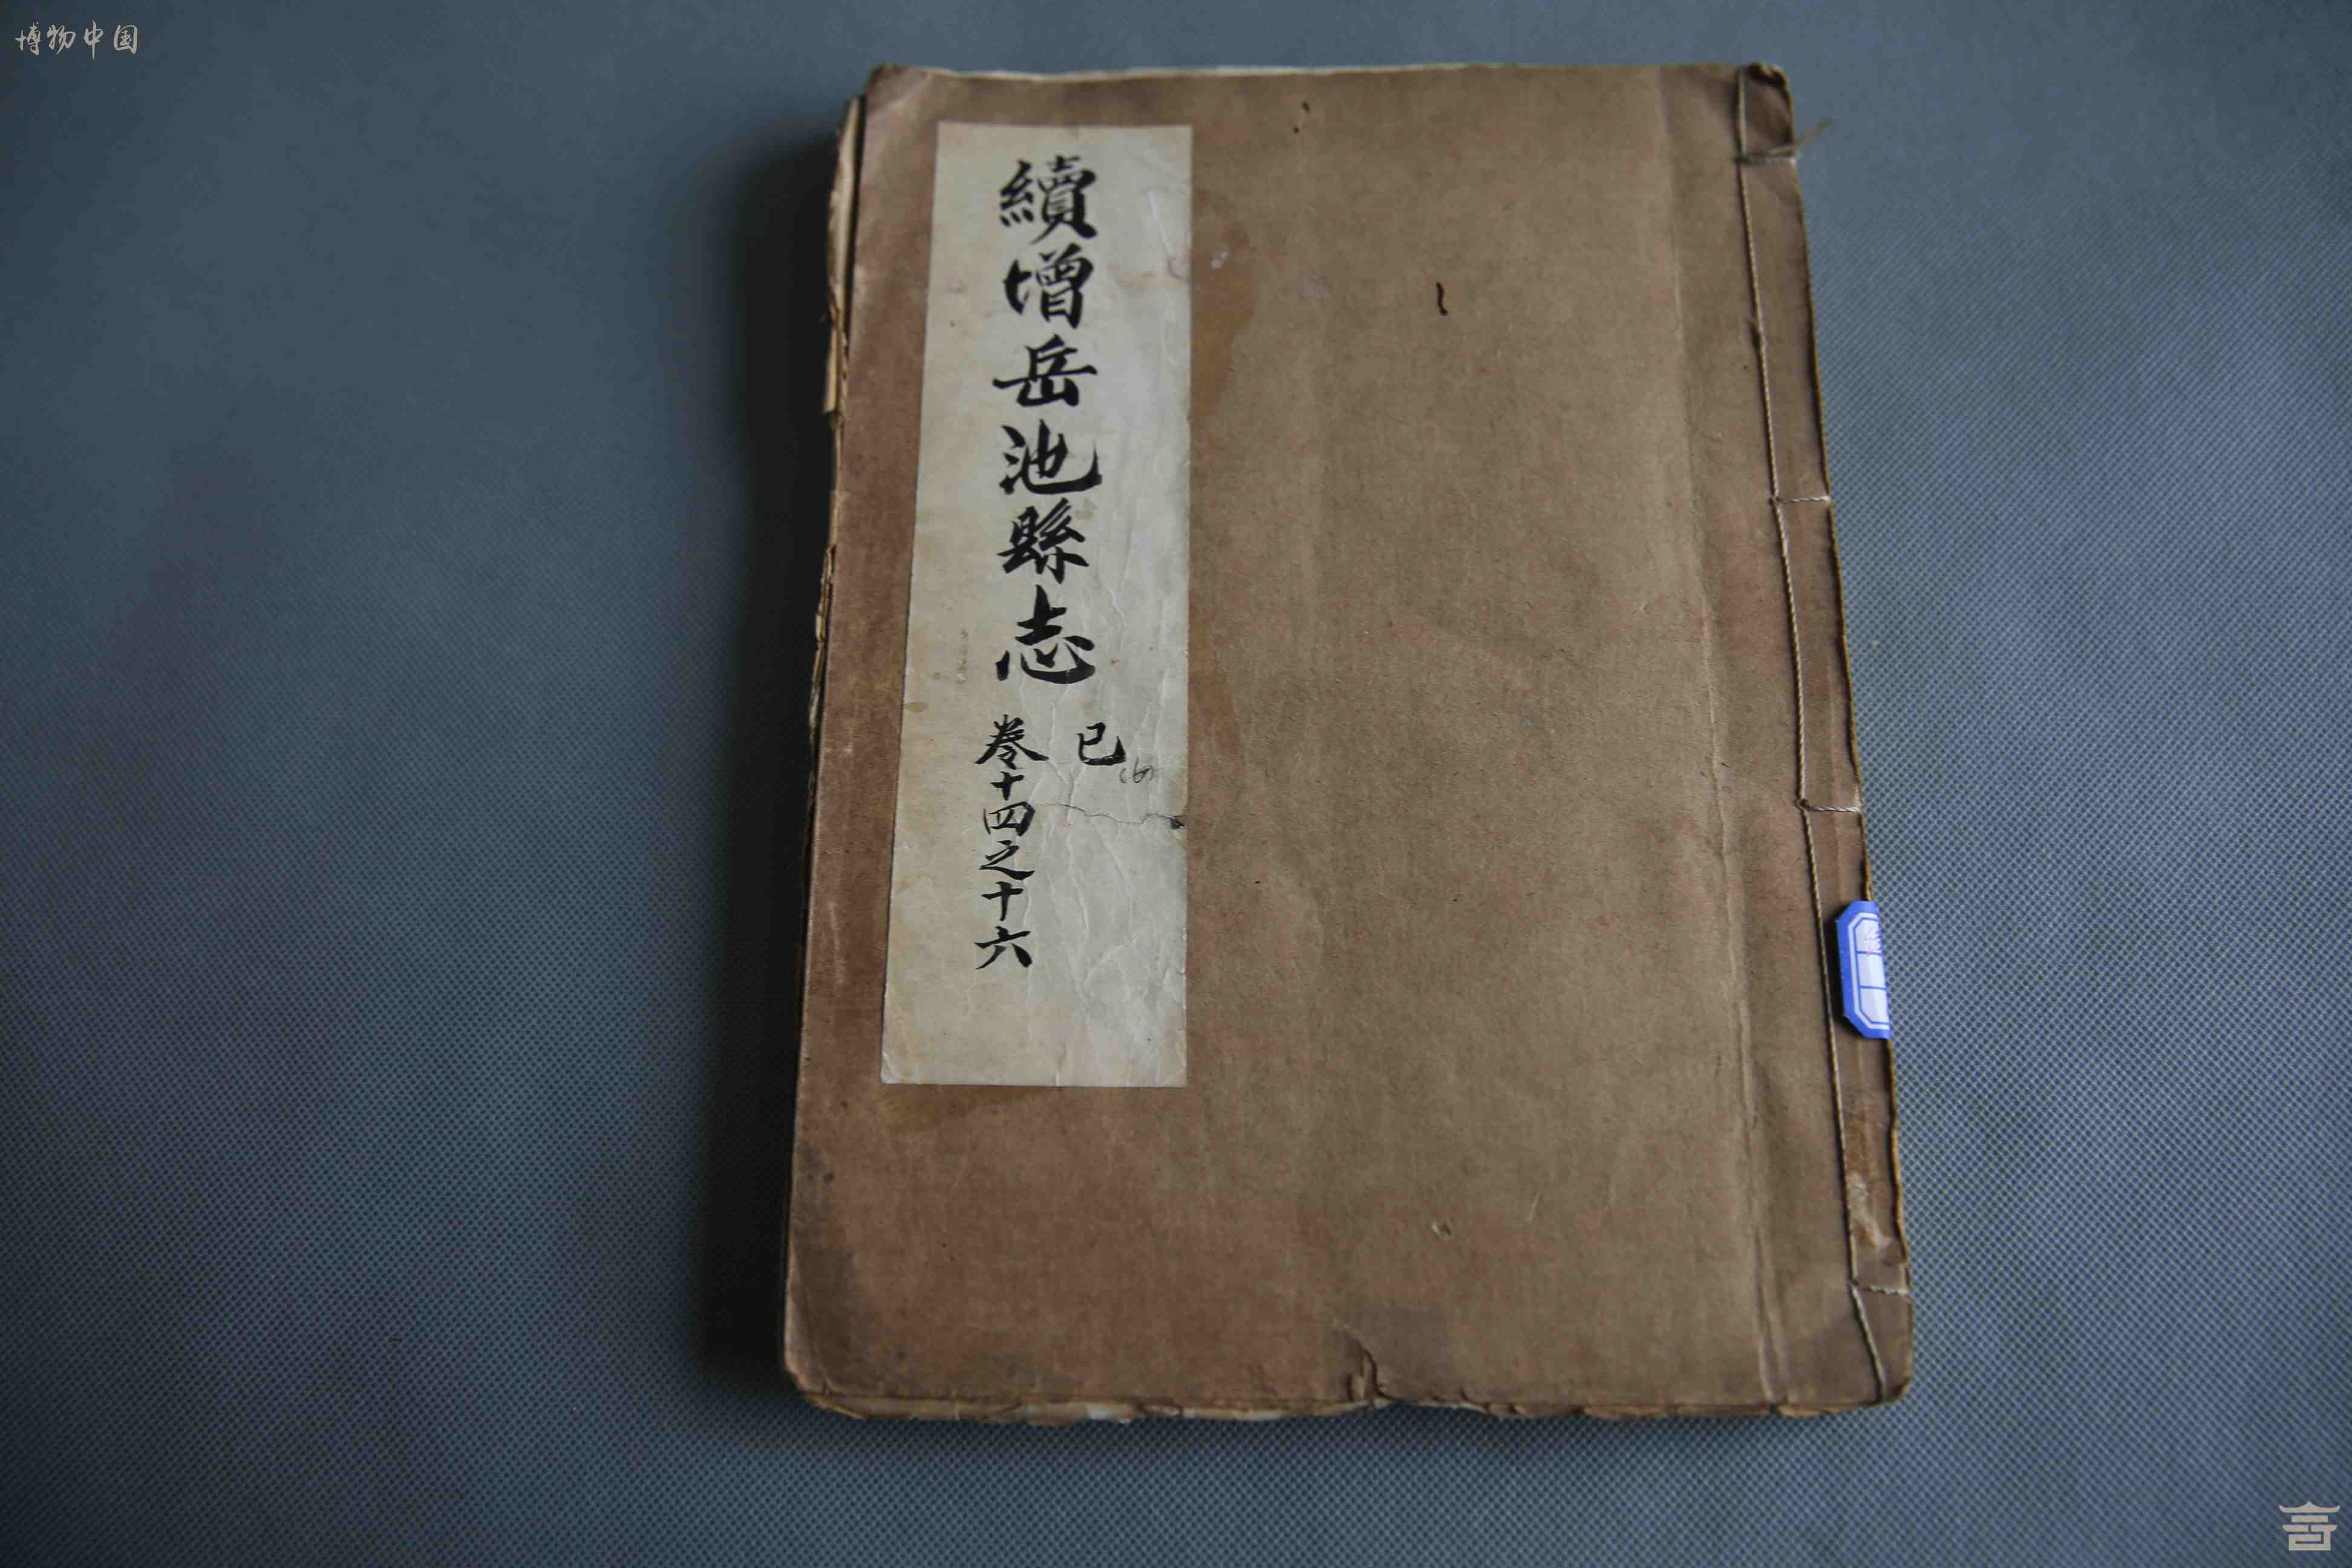 博物中国
續增岳池縣志
已
(6)
卷十四之十六